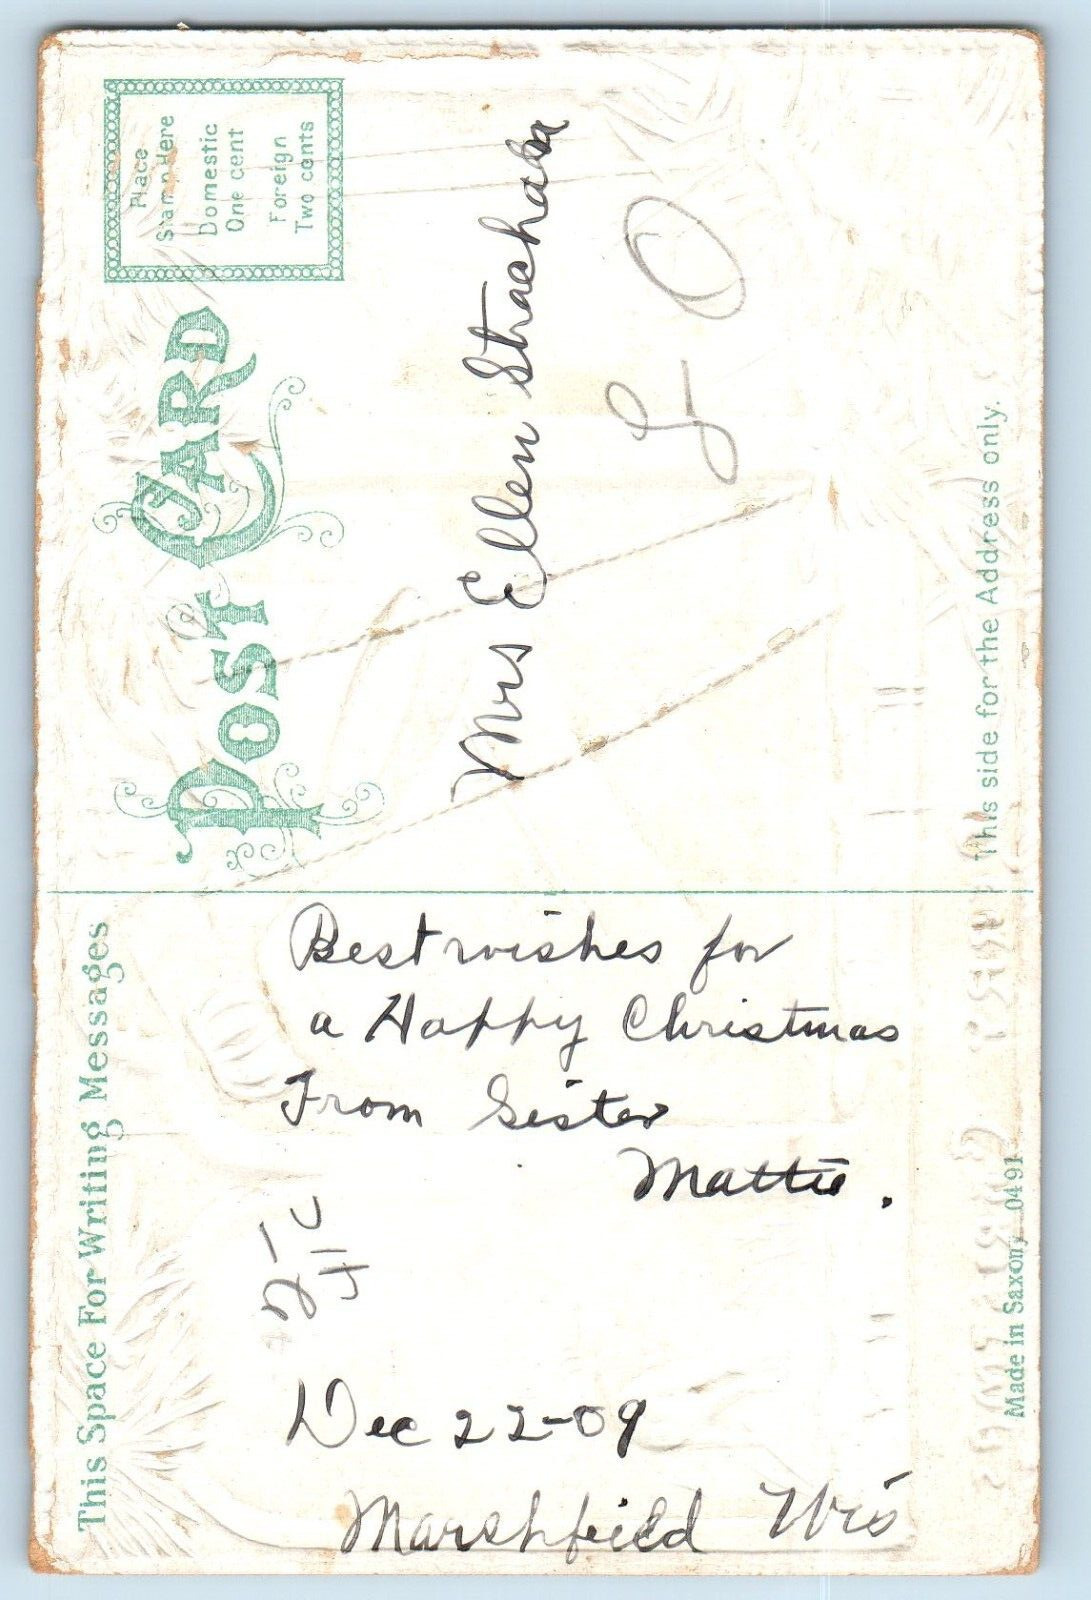 Place
Stamp Here
Domestic
One cent
Foreign
Two cents
POST CARD
Mrs Ellen Strachan
This side for the Address only.
This Space For Writing Messages
Best wishes for
a Happy Christmas
From Sister
Mattie.
Dec 22-09
Marshfield Wis
Made in Saxony 0491